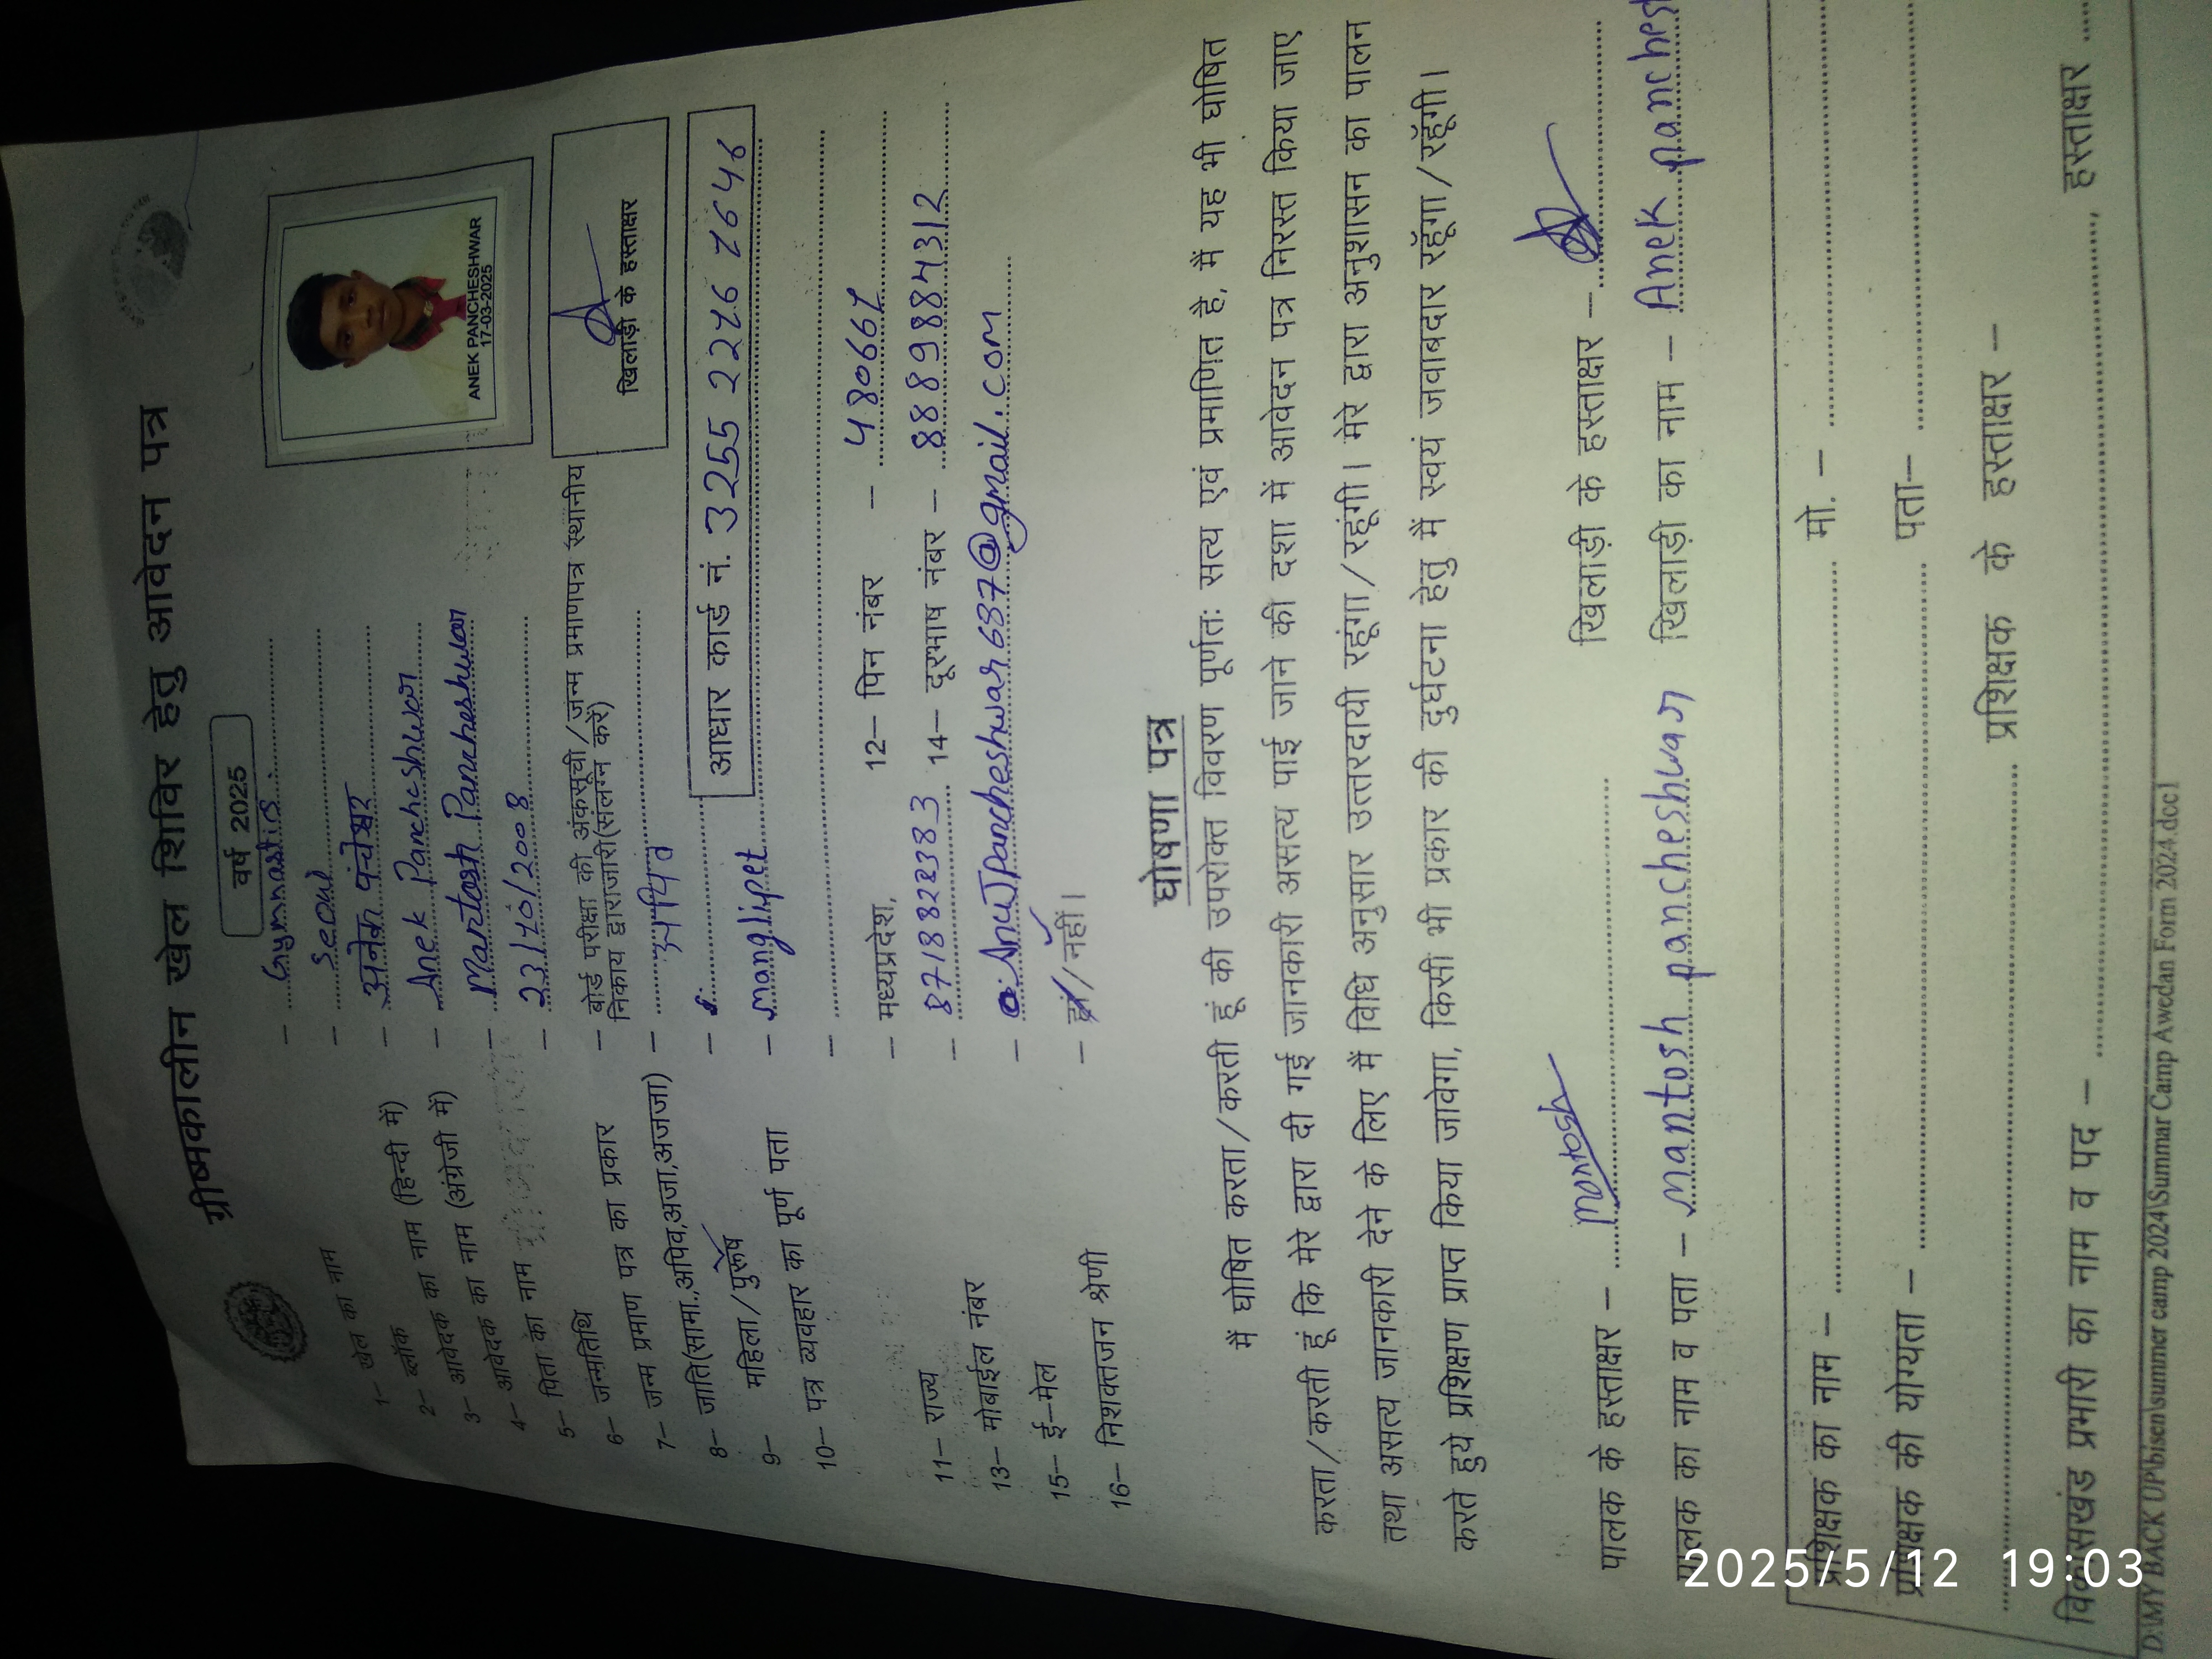 ग्रीष्मकालीन खेल शिविर हेतु आवेदन पत्र
वर्ष 2025
1– खेल का नाम –
2– ब्लॉक –
3– आवेदक का नाम (हिन्दी में) – अनेक पंचेश्वर
4– आवेदक का नाम (अंग्रेजी में) – Anek Pancheshwar
5– पिता का नाम – Mantosh Pancheshwar
6– जन्मतिथि – 23/10/2008
7– जन्म प्रमाण पत्र का प्रकार – बोर्ड परीक्षा की अंकसूची/जन्म प्रमाणपत्र स्थानीय
निकाय द्वाराजारी(संलग्न करें)
8– जाति(सामा.,अपिव,अजा,अजजा) – अपिव
9– महिला/पुरूष –
10– पत्र व्यवहार का पूर्ण पता – manglipet
ANEK PANCHESHWAR
17-03-2025
खिलाड़ी के हस्ताक्षर
आधार कार्ड नं. 3255
11– राज्य – मध्यप्रदेश, 12– पिन नंबर – 480661
13– मोबाईल नंबर – 8718822383 14– दूरभाष नंबर – 8889884312
15– ई–मेल – AnuJpancheshwar687@gmail.com
16– निशक्तजन श्रेणी – हां/नहीं।
घोषणा पत्र
मैं घोषित करता/करती हूं की उपरोक्त विवरण पूर्णतः सत्य एवं प्रमाणित है, मैं यह भी घोषित
करता/करती हूं कि मेरे द्वारा दी गई जानकारी असत्य पाई जाने की दशा में आवेदन पत्र निरस्त किया जाए
तथा असत्य जानकारी देने के लिए मैं विधि अनुसार उत्तरदायी रहूंगा/रहूंगी। मेरे द्वारा अनुशासन का पालन
करते हुये प्रशिक्षण प्राप्त किया जावेगा, किसी भी प्रकार की दुर्घटना हेतु मैं स्वयं जवाबदार रहूंगा/रहूंगी।
पालक के हस्ताक्षर – Mantosh खिलाड़ी के हस्ताक्षर –
पालक का नाम व पता – mantosh pancheshwar खिलाड़ी का नाम – Anek
प्रशिक्षक का नाम – मो. –
प्रशिक्षक की योग्यता – पता–
प्रशिक्षक के हस्ताक्षर –
विकासखंड प्रभारी का नाम व पद – , हस्ताक्षर
D:\MY BACK UP\bisen\summer camp 2024\Summar Camp Awedan Form 2024.doc1
2025/5/12 19:03